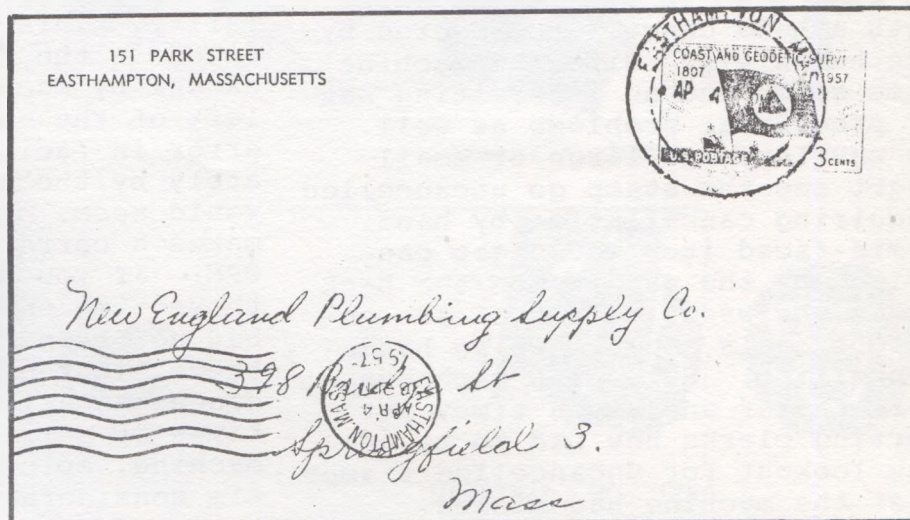 151 PARK STREET
EASTHAMPTON, MASSACHUSETTS
EASTHAMPTON, MASS
AP 4
COAST AND GEODETIC SURVEY
1807
1957
U.S. POSTAGE
3 CENTS
New England Plumbing Supply Co.
398 St
Springfield 3.
Mass
EASTHAMPTON, MASS.
APR 4
PM
1957